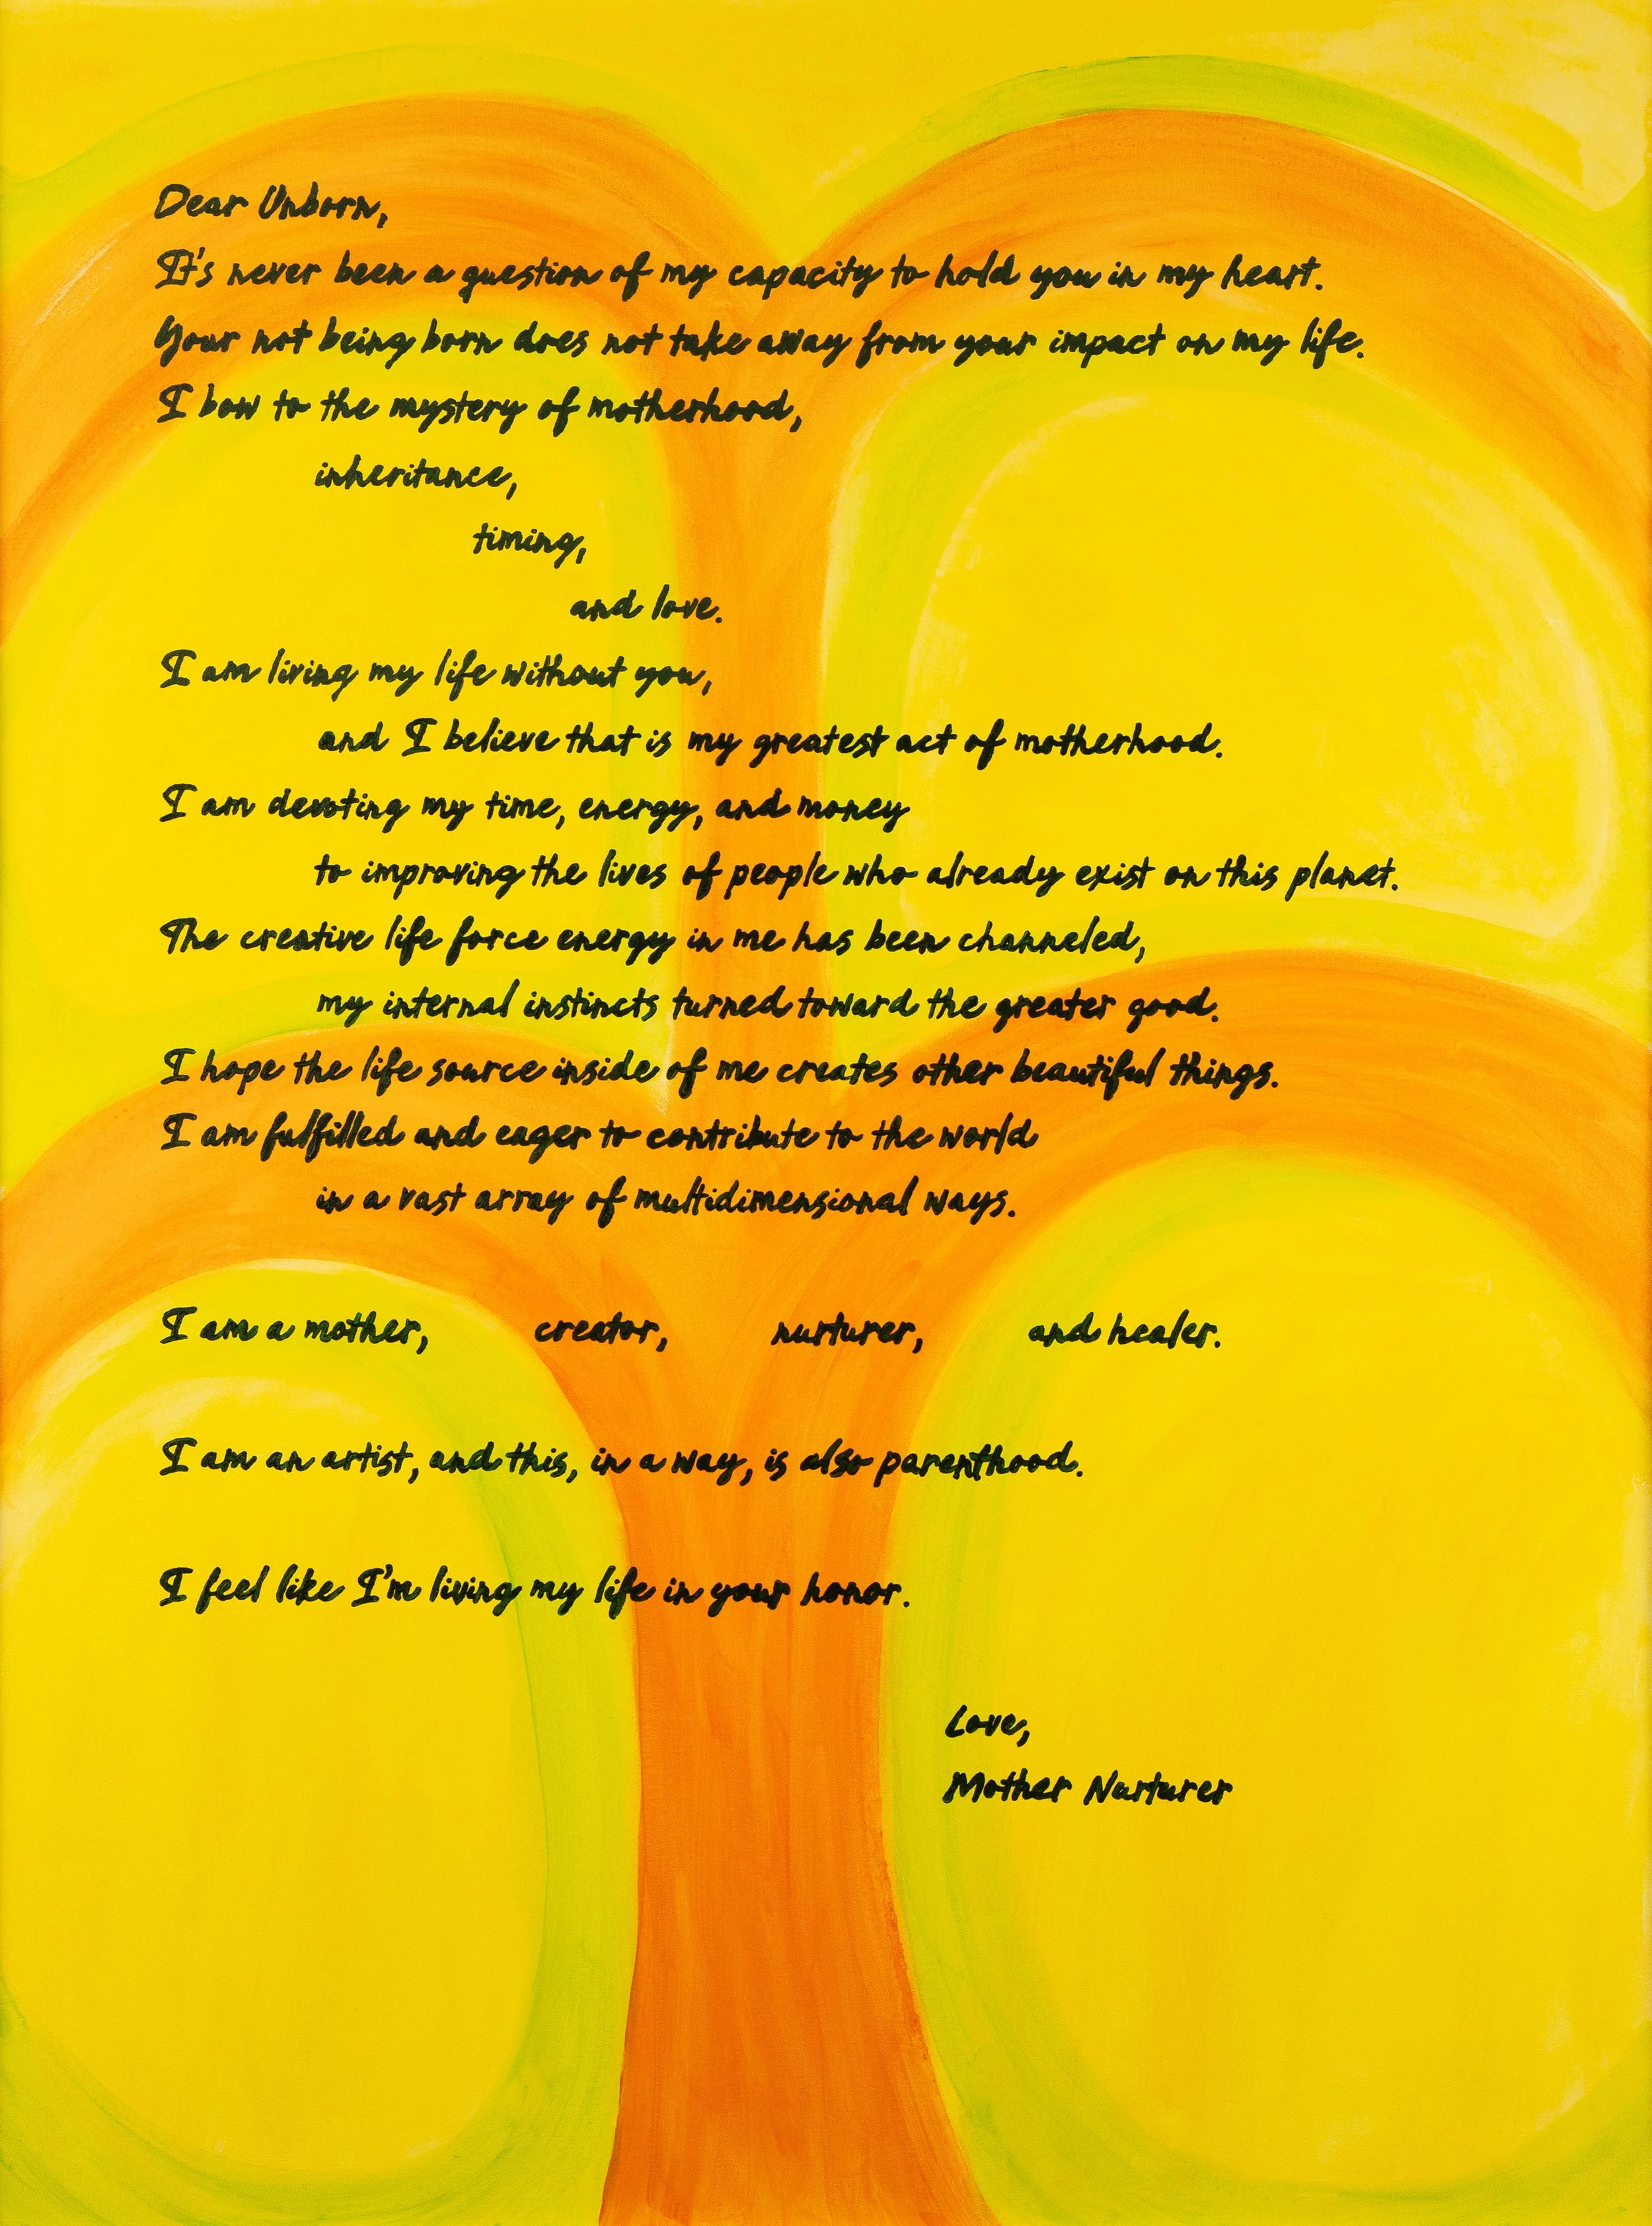 Dear Unborn,
It's never been a question of my capacity to hold you in my heart.
Your not being born does not take away from your impact on my life.
I bow to the mystery of motherhood,
inheritance,
timing,
and love.
I am living my life without you,
and I believe that is my greatest act of motherhood.
I am devoting my time, energy, and money
to improving the lives of people who already exist on this planet.
The creative life force energy in me has been channeled,
my internal instincts turned toward the greater good.
I hope the life source inside of me creates other beautiful things.
I am fulfilled and eager to contribute to the world
in a vast array of multidimensional ways.
I am a mother, creator, nurturer, and healer.
I am an artist, and this, in a way, is also parenthood.
I feel like I'm living my life in your honor.
Love,
Mother Nurturer